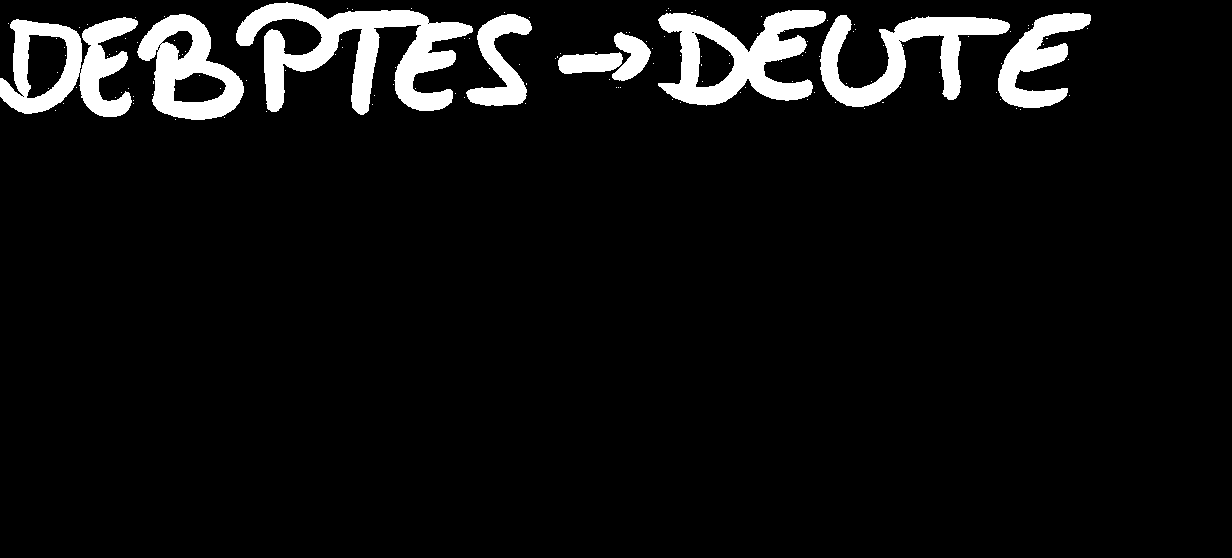 DEBPTES → DEUTE